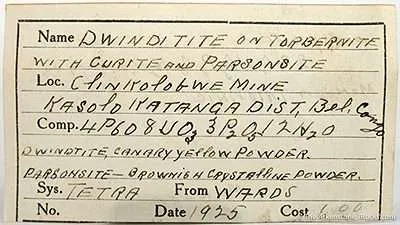 Name DWINDITITE ON TORBERNITE
WITH CURITE AND PARSONSITE
Loc. CHINKOLOBWE MINE
KASOLO KATANGA DIST, Bel. Congo
Comp. 4PbO 8UO3 3P2O5 12H2O
DWINDTITE, CANARY YELLOW POWDER.
PARSONSITE - BROWNISH CRYSTALLINE POWDER.
Sys. TETRA From WARDS
No. Date 1925 Cost 1.00